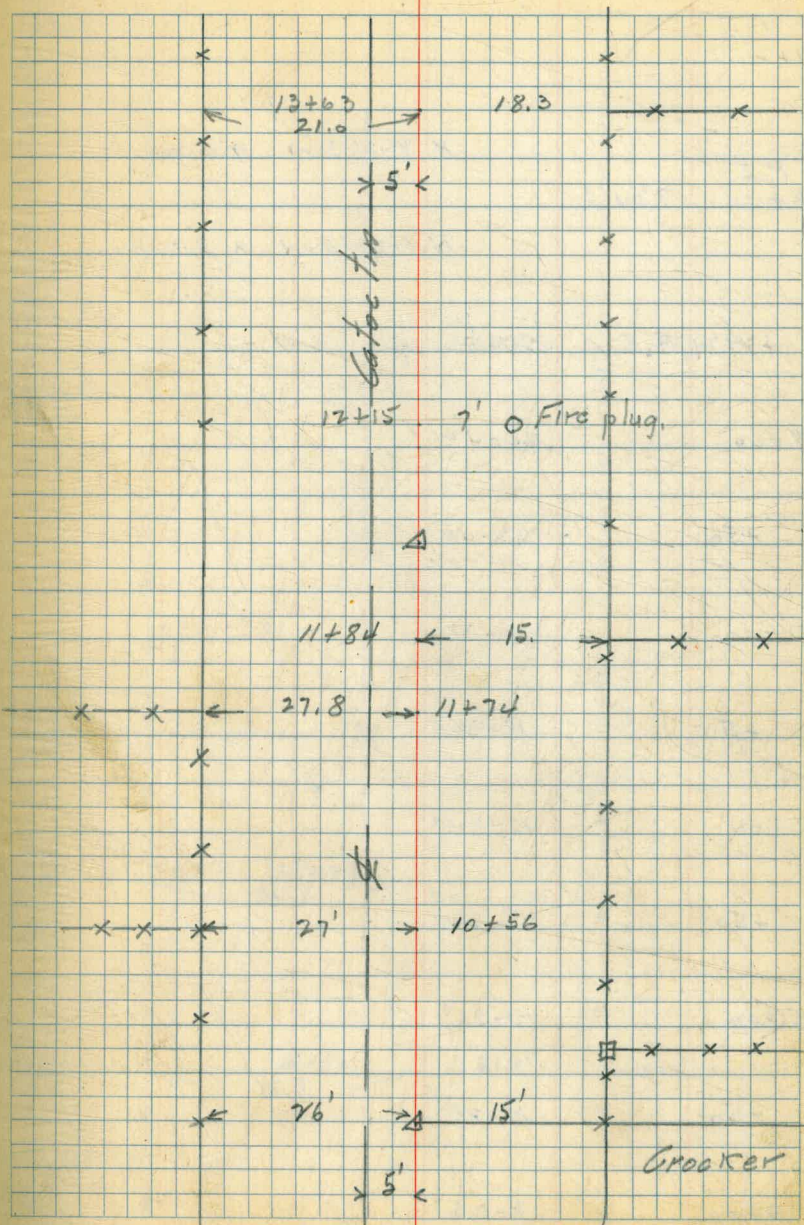 13+63 18.3
21.0
5'
12+15 7' Fire plug.
11+84 15.
27.8 11+74
℄
27' 10+56
26' 15'
Crocker
5'